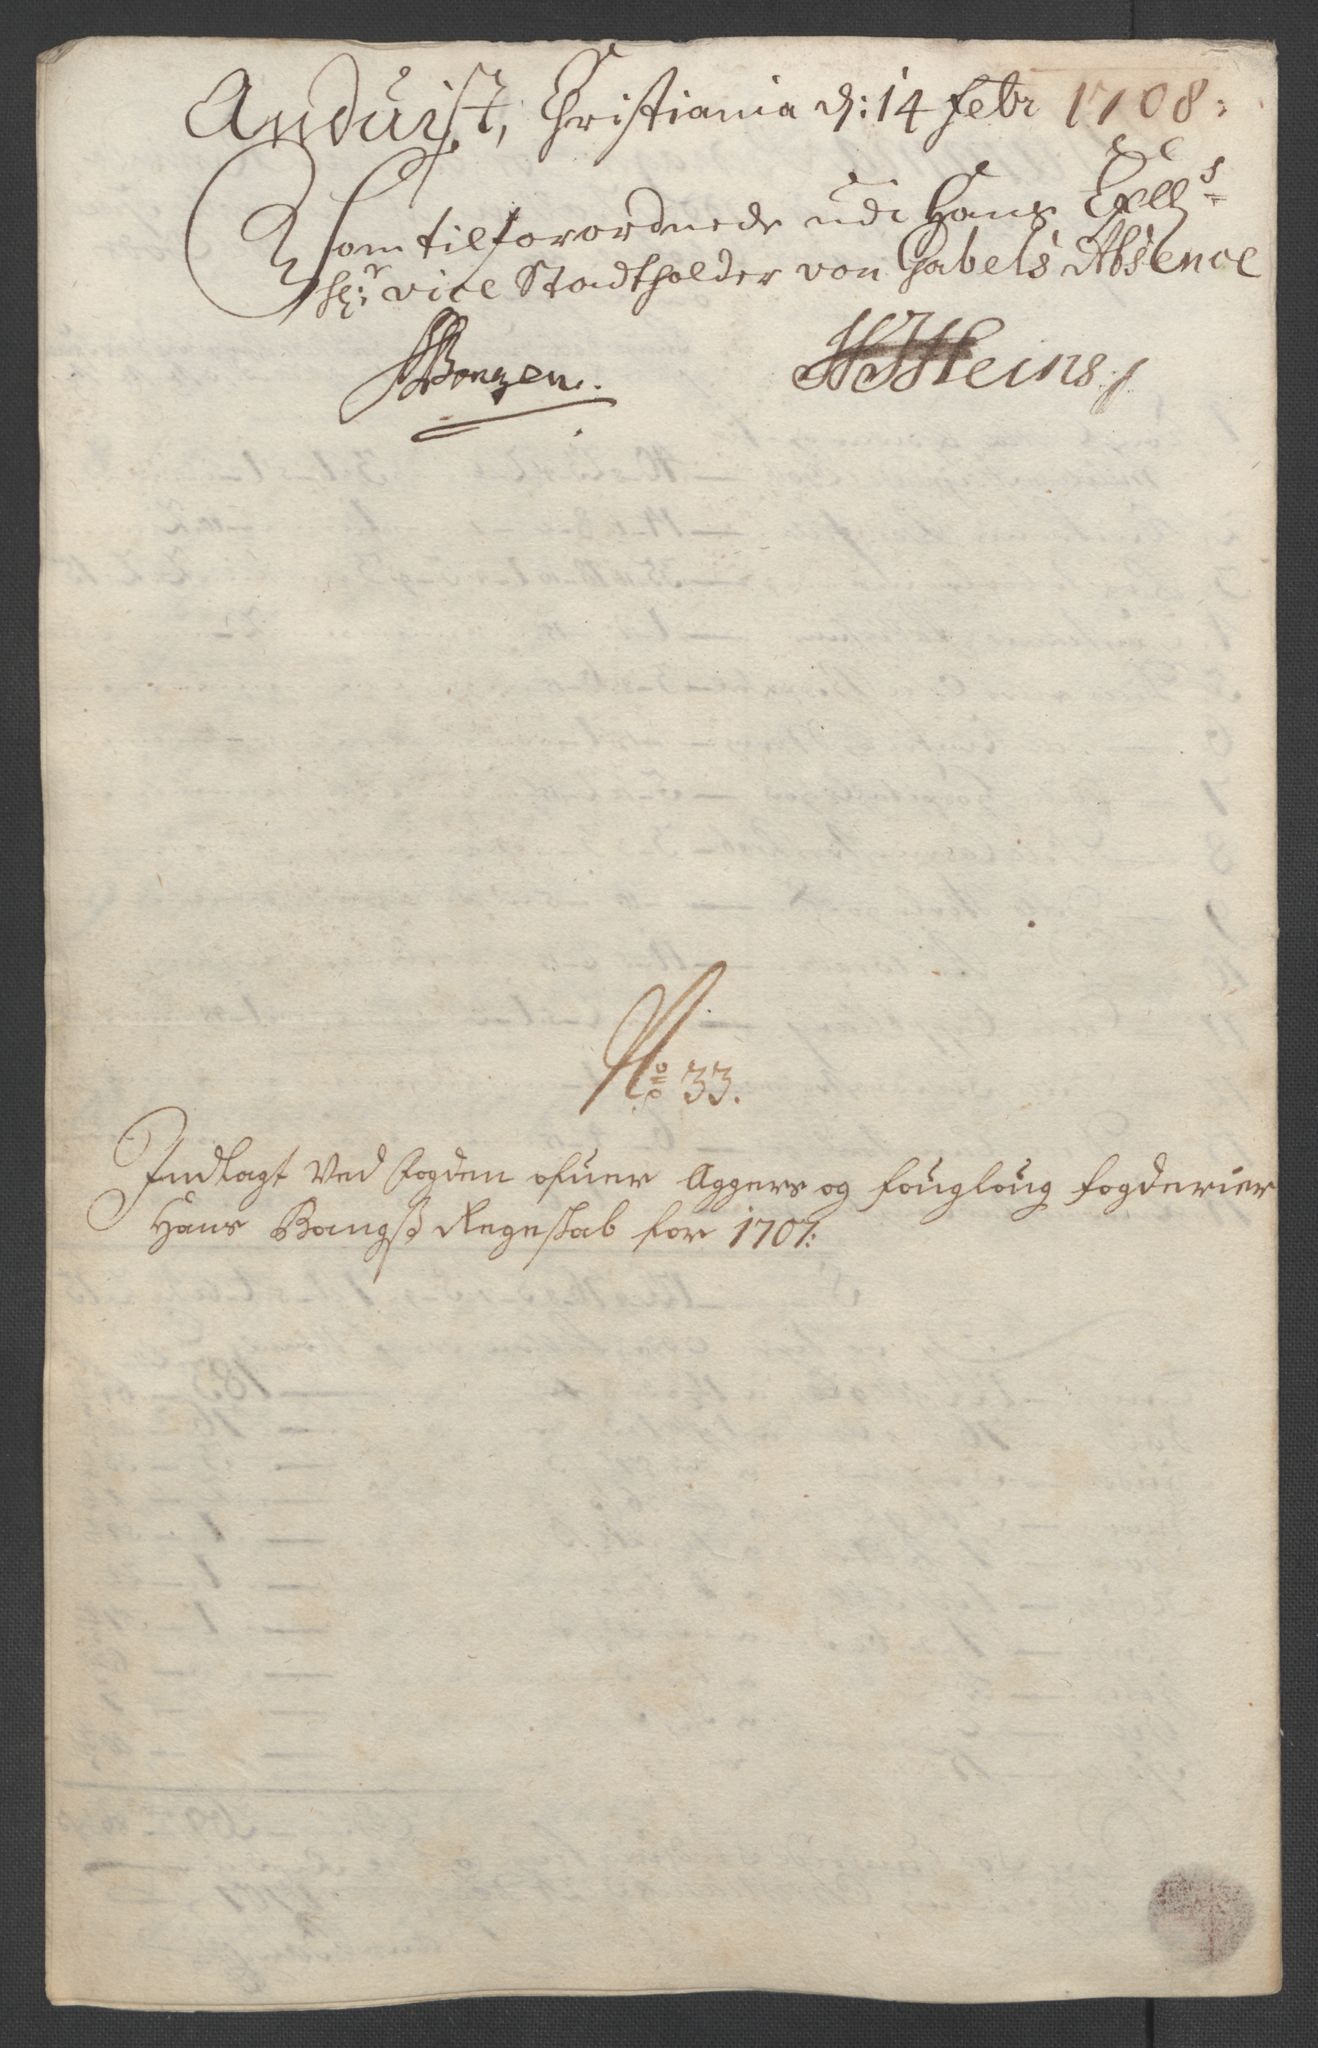 Anduist, Christiania d: 14 Febr 1708:
Som tilforordnede udi Hans Excell.s
H:r vice Stadtholder von Gabels Absence
Borzen. HJHeins
No 33.
Indlagt Ved fogden ofuer Aggers og fougloug fogderier
Hans Bangs Regeskab for 1707: